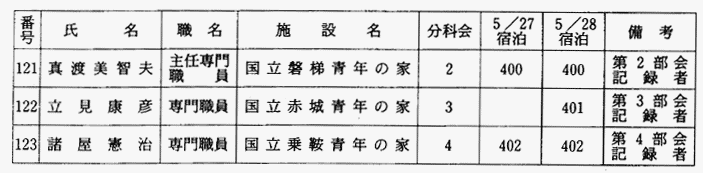 番号 氏名 職名 施設名 分科会 5/27宿泊 5/28宿泊 備考
121 真渡美智夫 主任専門職員 国立磐梯青年の家 2 400 400 第2部会記録者
122 立見康彦 専門職員 国立赤城青年の家 3 401 第3部会記録者
123 諸屋憲治 専門職員 国立乗鞍青年の家 4 402 402 第4部会記録者